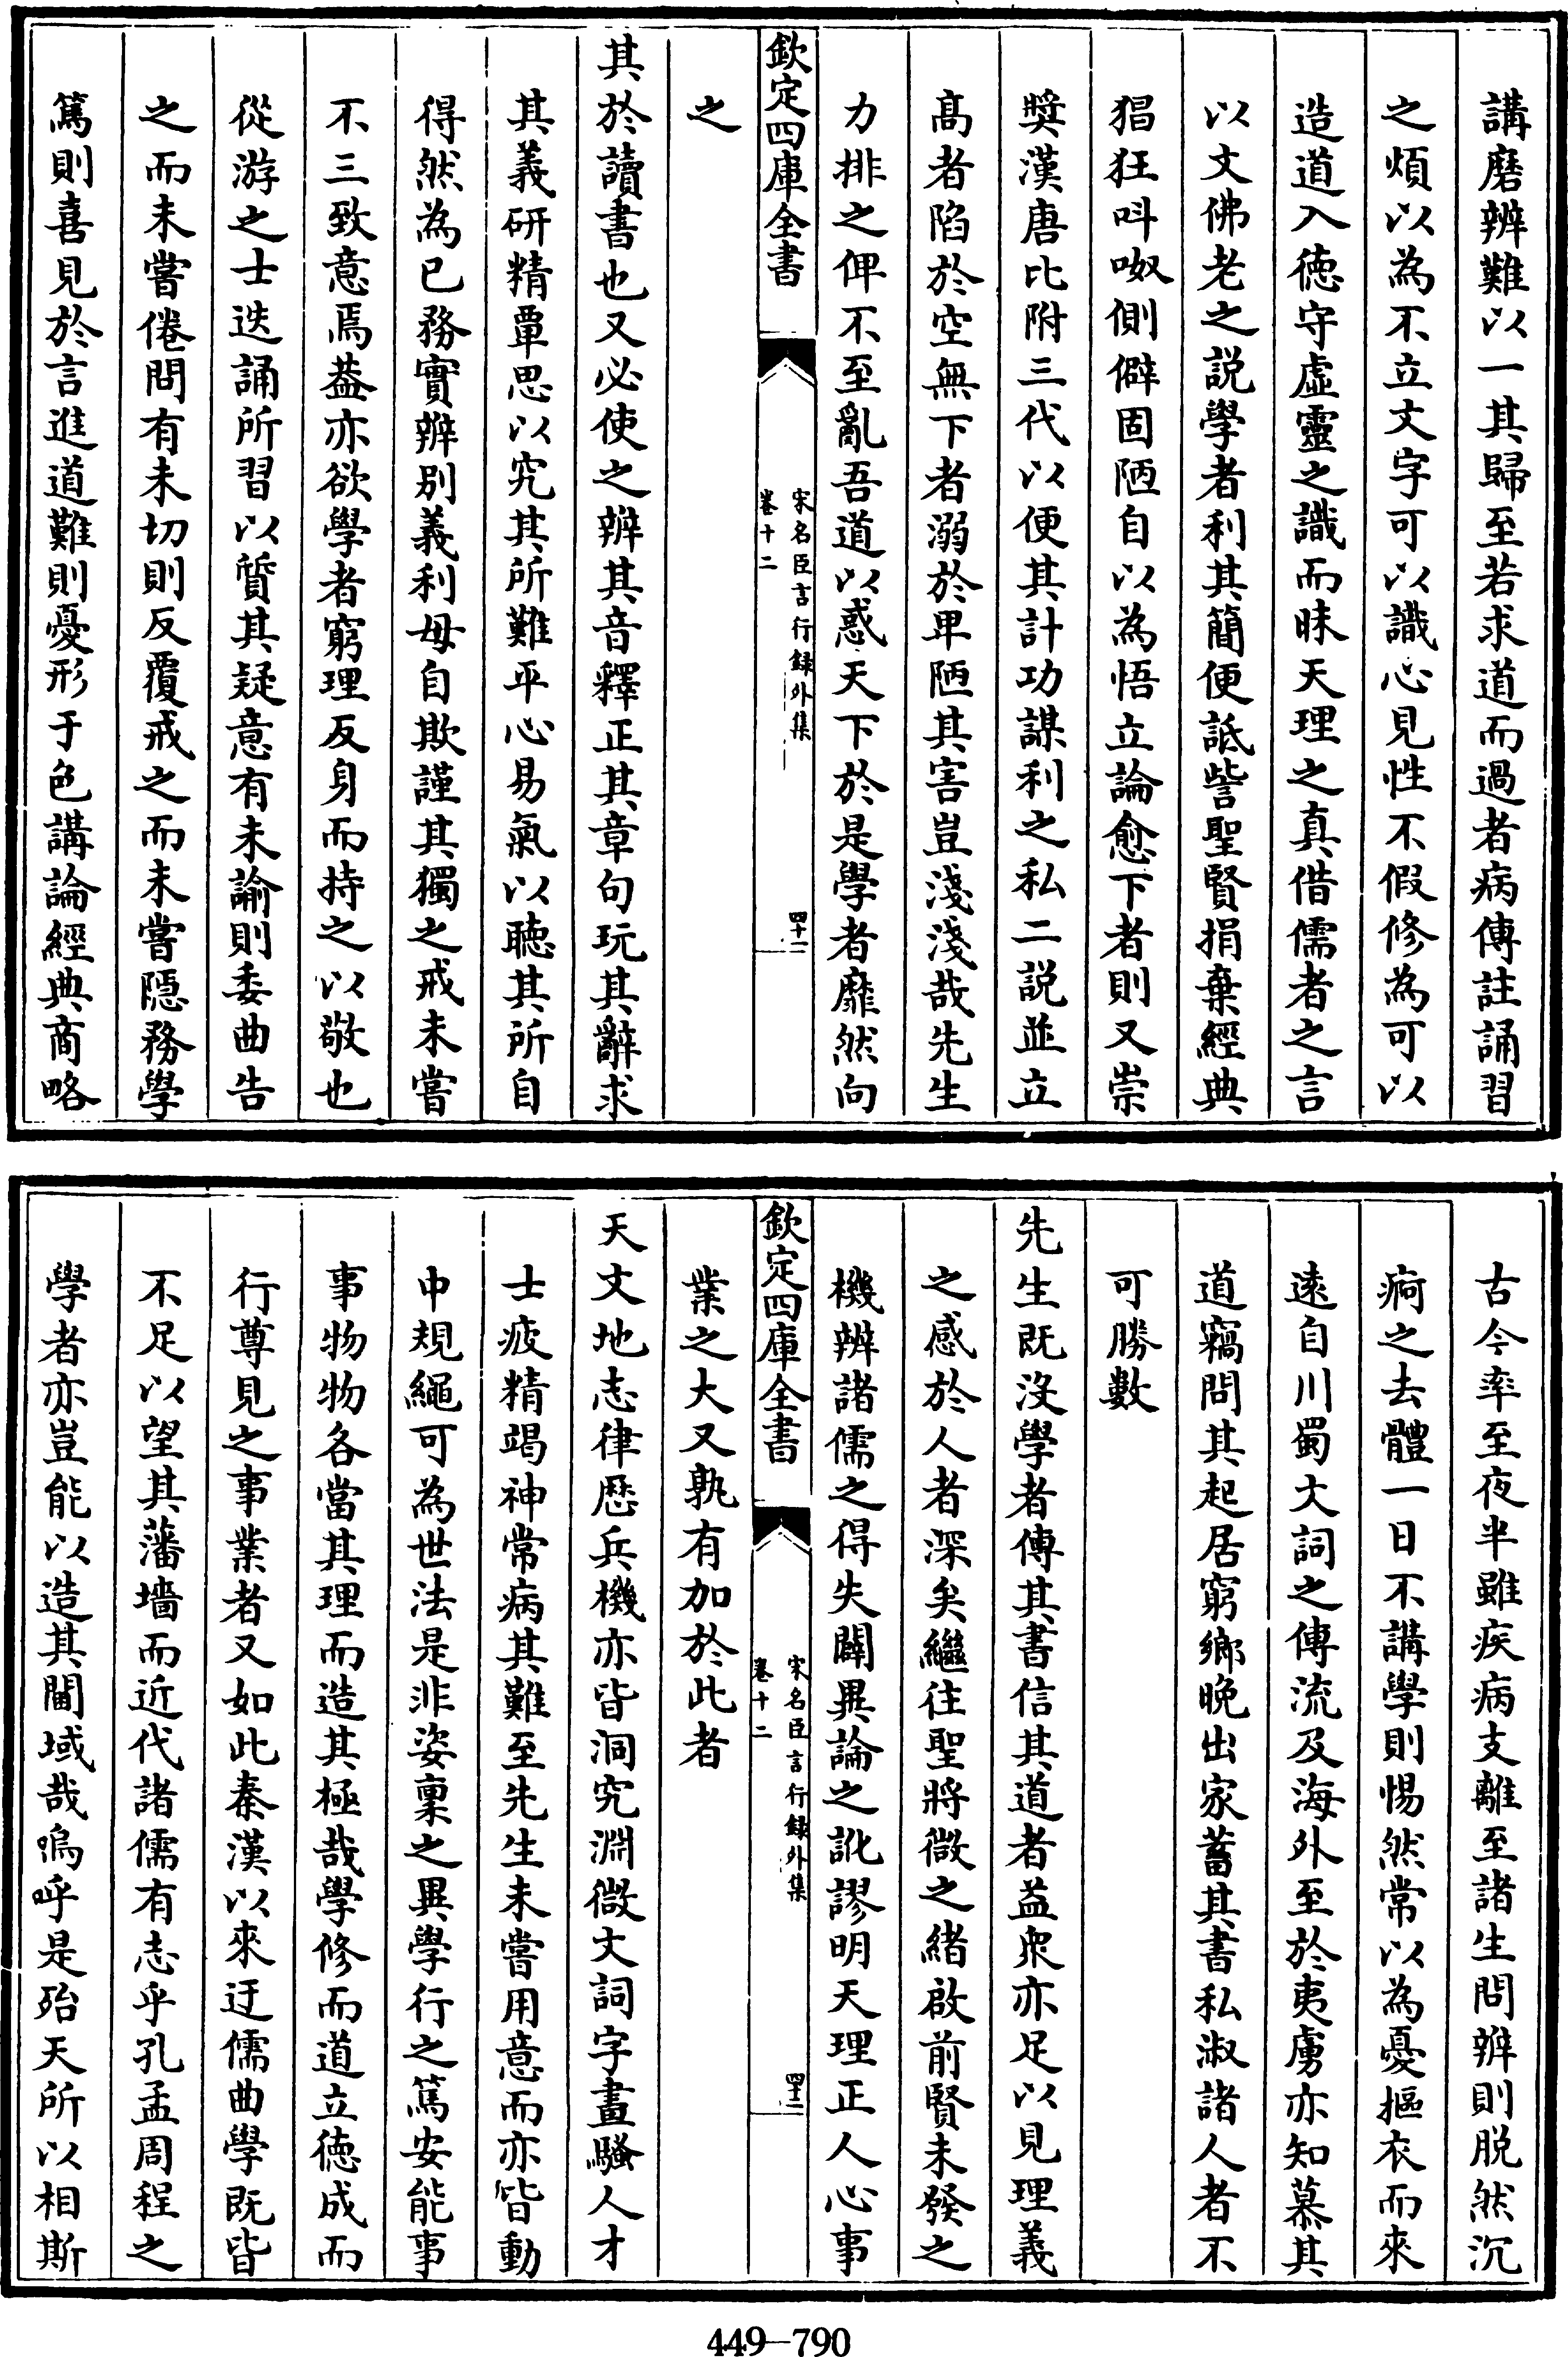 講磨辨難以一其歸至若求道而過者病傳註誦習
之煩以為不立文字可以識心見性不假修為可以
造道入徳守虛靈之識而昧天理之真借儒者之言
以文佛老之説學者利其簡便詆訾聖賢捐棄經典
猖狂呌呶側僻固陋自以為悟立論愈下者則又崇
奬漢唐比附三代以便其計功謀利之私二説並立
髙者陷於空無下者溺於卑陋其害豈淺淺哉先生
力排之俾不至亂吾道以惑天下於是學者靡然向
欽定四庫全書
宋名臣言行録外集
卷十二
四十一
之
其於讀書也又必使之辨其音釋正其章句玩其辭求
其義研精覃思以究其所難平心易氣以聴其所自
得然為已務實辨别義利毋自欺謹其獨之戒未嘗
不三致意焉葢亦欲學者窮理反身而持之以敬也
從游之士迭誦所習以質其疑意有未諭則委曲告
之而未嘗倦問有未切則反覆戒之而未嘗隱務學
篤則喜見於言進道難則憂形于色講論經典商略
古今率至夜半雖疾病支離至諸生問辨則脱然沉
痾之去體一日不講學則惕然常以為憂摳衣而來
逺自川蜀文詞之傳流及海外至於夷虜亦知慕其
道竊問其起居窮鄉晚出家蓄其書私淑諸人者不
可勝數
先生既沒學者傳其書信其道者益衆亦足以見理義
之感於人者深矣繼往聖將微之緒啟前賢未發之
機辨諸儒之得失闢異論之訛謬明天理正人心事
欽定四庫全書
宋名臣言行録外集
卷十二
四十二
業之大又孰有加於此者
天文地志律歴兵機亦皆洞究淵微文詞字畫騷人才
士疲精竭神常病其難至先生未嘗用意而亦皆動
中規繩可為世法是非姿稟之異學行之篤安能事
事物物各當其理而造其極哉學修而道立徳成而
行尊見之事業者又如此秦漢以來迂儒曲學既皆
不足以望其藩墻而近代諸儒有志乎孔孟周程之
學者亦豈能以造其閫域哉嗚呼是殆天所以相斯
449—790